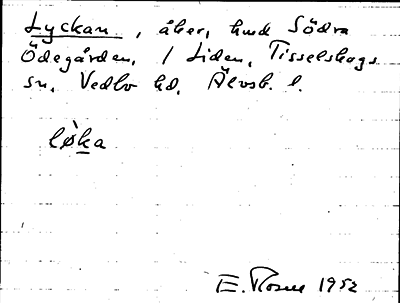 Lyckan, åker, hmd Södra
Ödegården, 1 Liden, Tisselskogs
sn, Vedbo hd, Älvsb. l.
lø̀ka
E. Rosén 1952